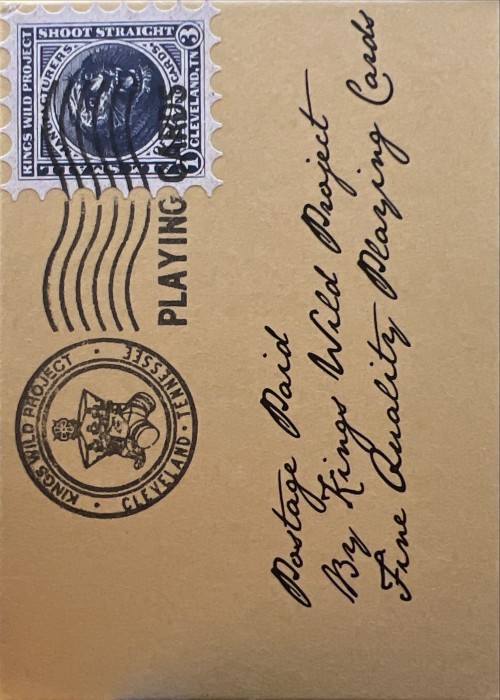 KINGS WILD PROJECT
SHOOT STRAIGHT
CARDS.
CLEVELAND, TN
3
PLAYING CARDS
KINGS WILD PROJECT
CLEVELAND · TENNESSEE
Postage Paid
By Kings Wild Project
Fine Quality Playing Cards